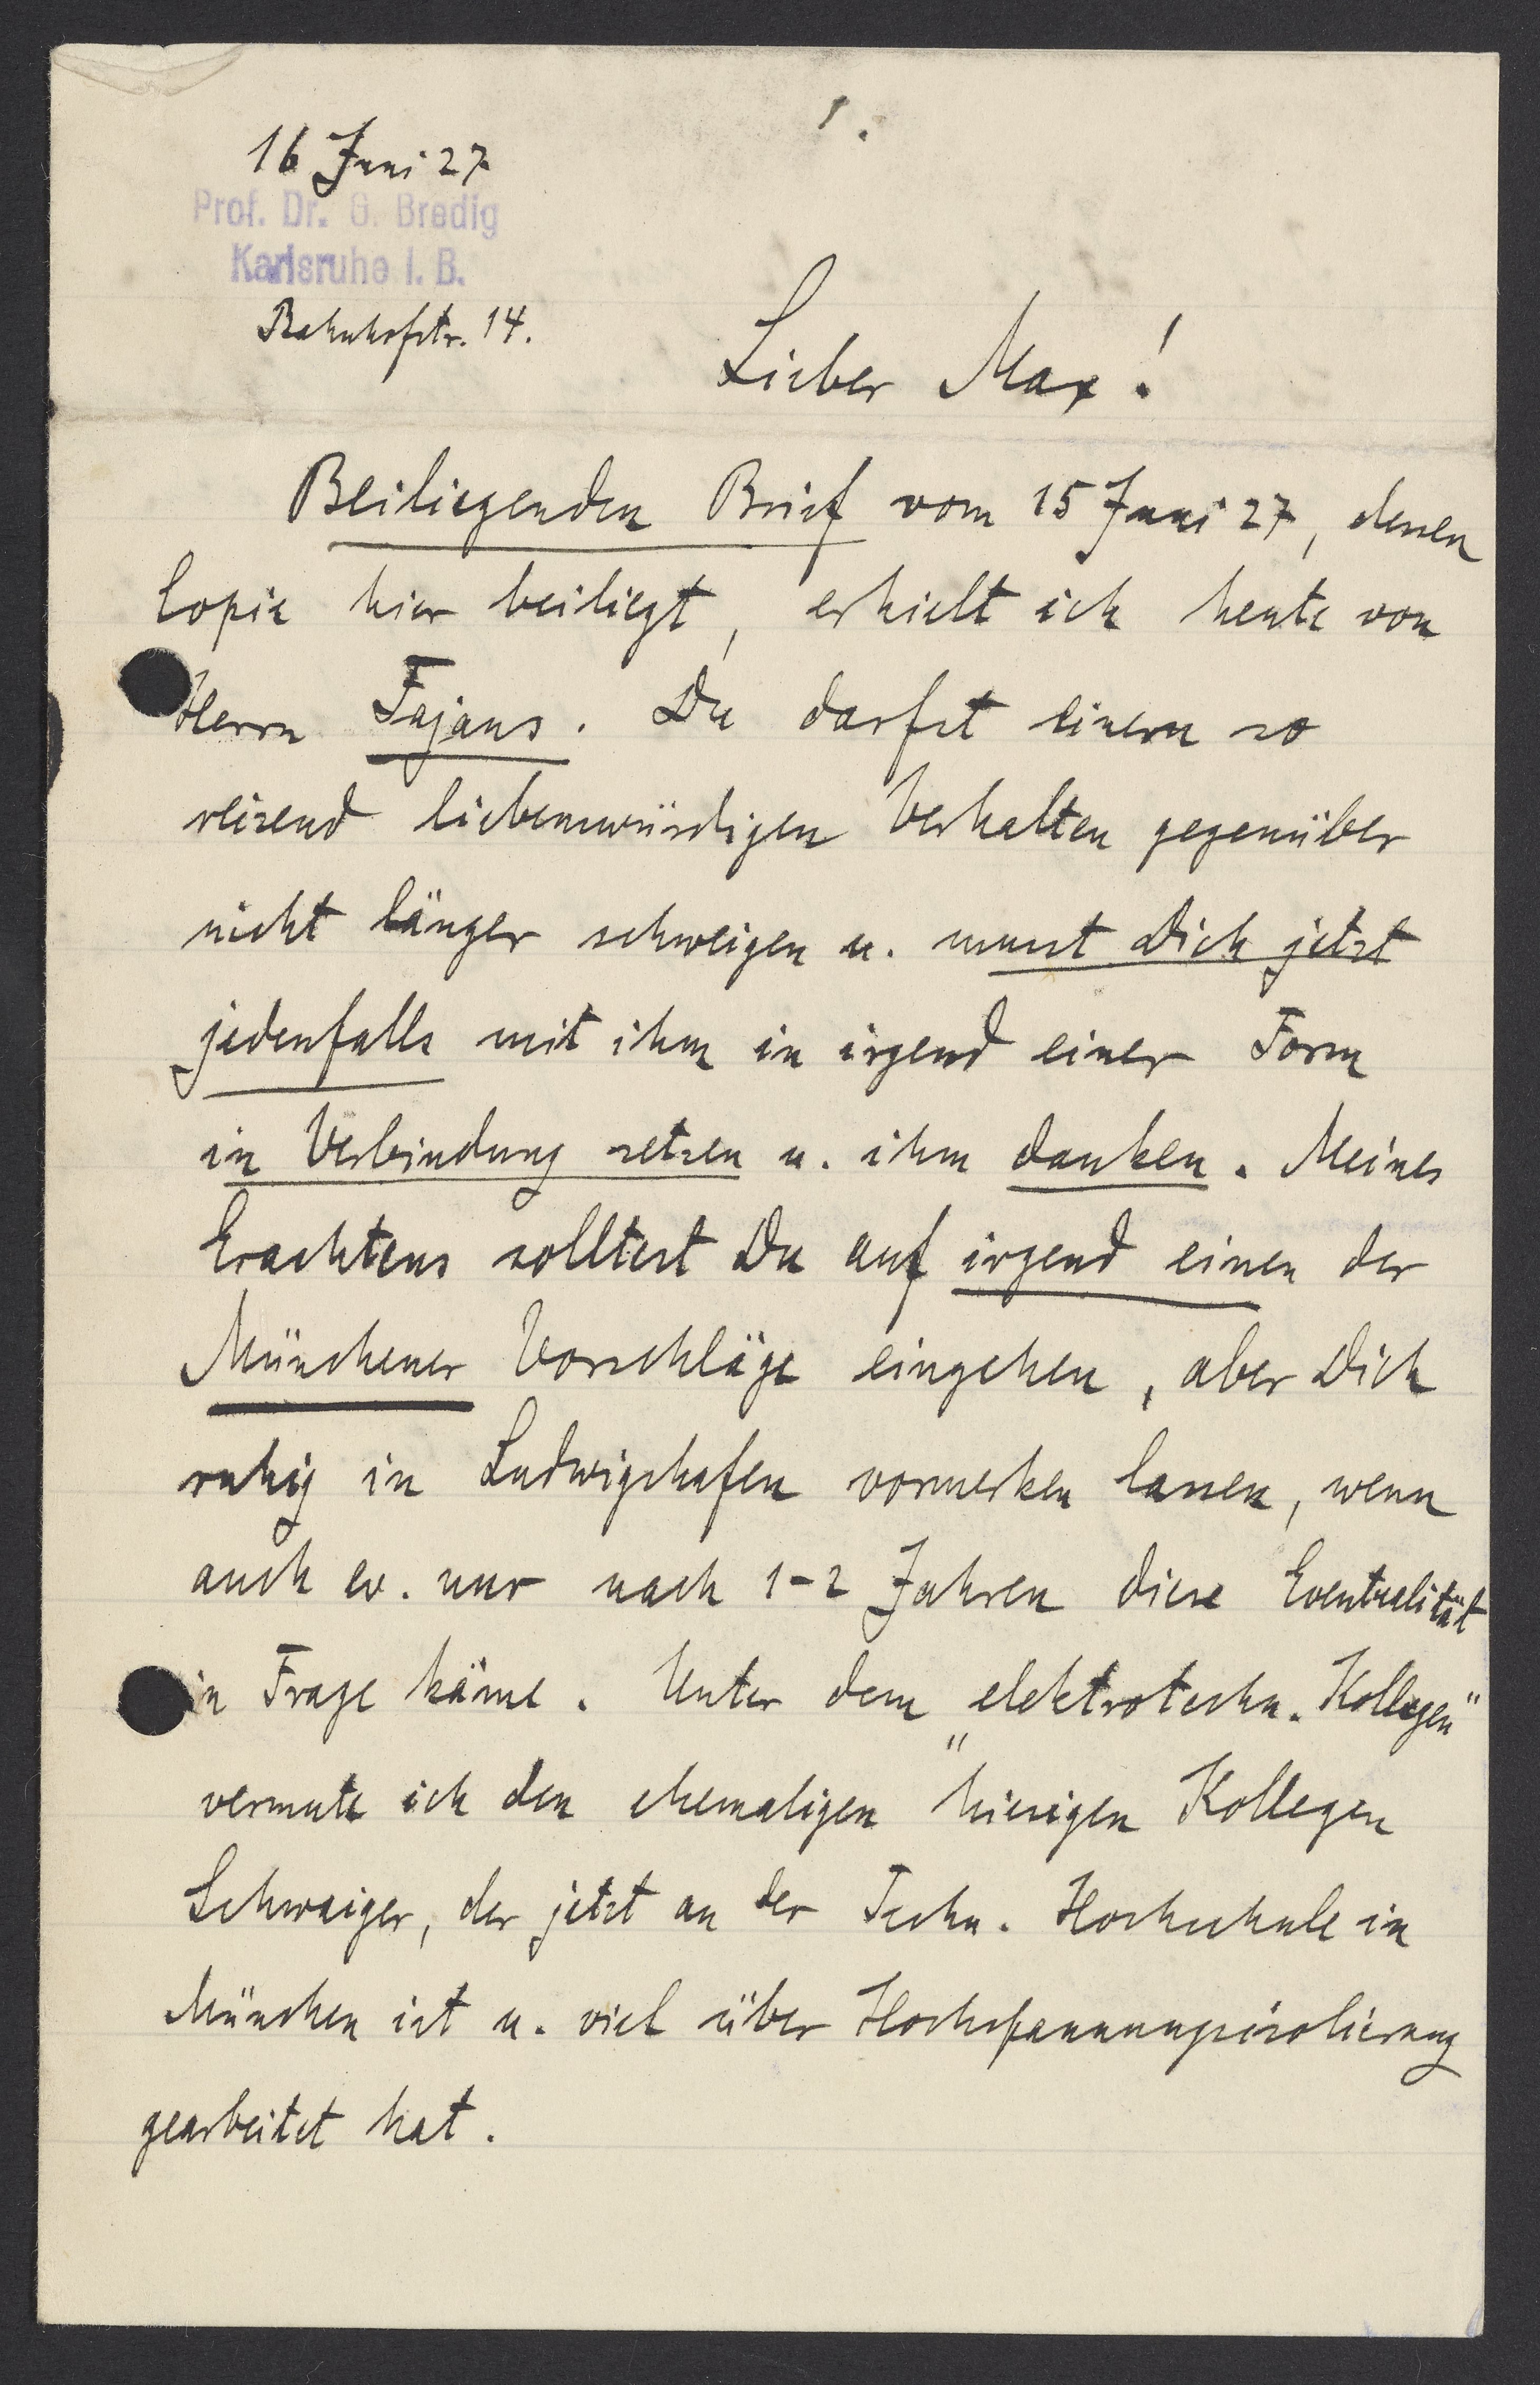 1.
16 Juni 27
Prof. Dr. G. Bredig
Karlsruhe i. B.
Bahnhofstr. 14.
Lieber Max!
Beiliegenden Brief vom 15 Juni 27, dessen
Copie hier beiliegt, erhielt ich heute von
Herrn Fajans. Du darfst einem so
reizend liebenswürdigen Verhalten gegenüber
nicht länger schweigen u. musst Dich jetzt
jedenfalls mit ihm in irgend einer Form
in Verbindung setzen u. ihm danken. Meines
Erachtens solltest Du auf irgend einen der
Münchener Vorschläge eingehen, aber Dich
ruhig in Ludwigshafen vormerken lassen, wenn
auch ev. nur nach 1-2 Jahren diese Eventualität
in Frage käme. Unter dem "elektrotechn. Kollegen"
vermute ich den ehemaligen hiesigen Kollegen
Schwaiger, der jetzt an der Techn. Hochschule in
München ist u. viel über Hochspannungsisolierung
gearbeitet hat.